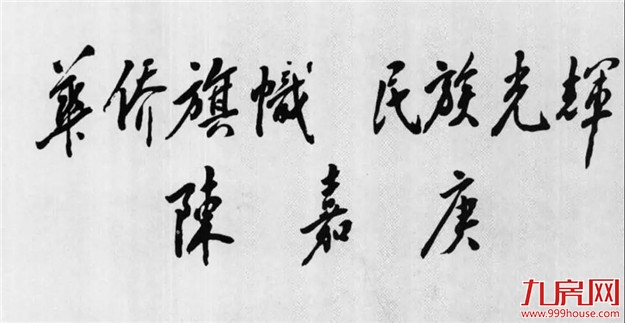 華侨旗幟 民族光輝
陳嘉庚
九房网
www.999house.com